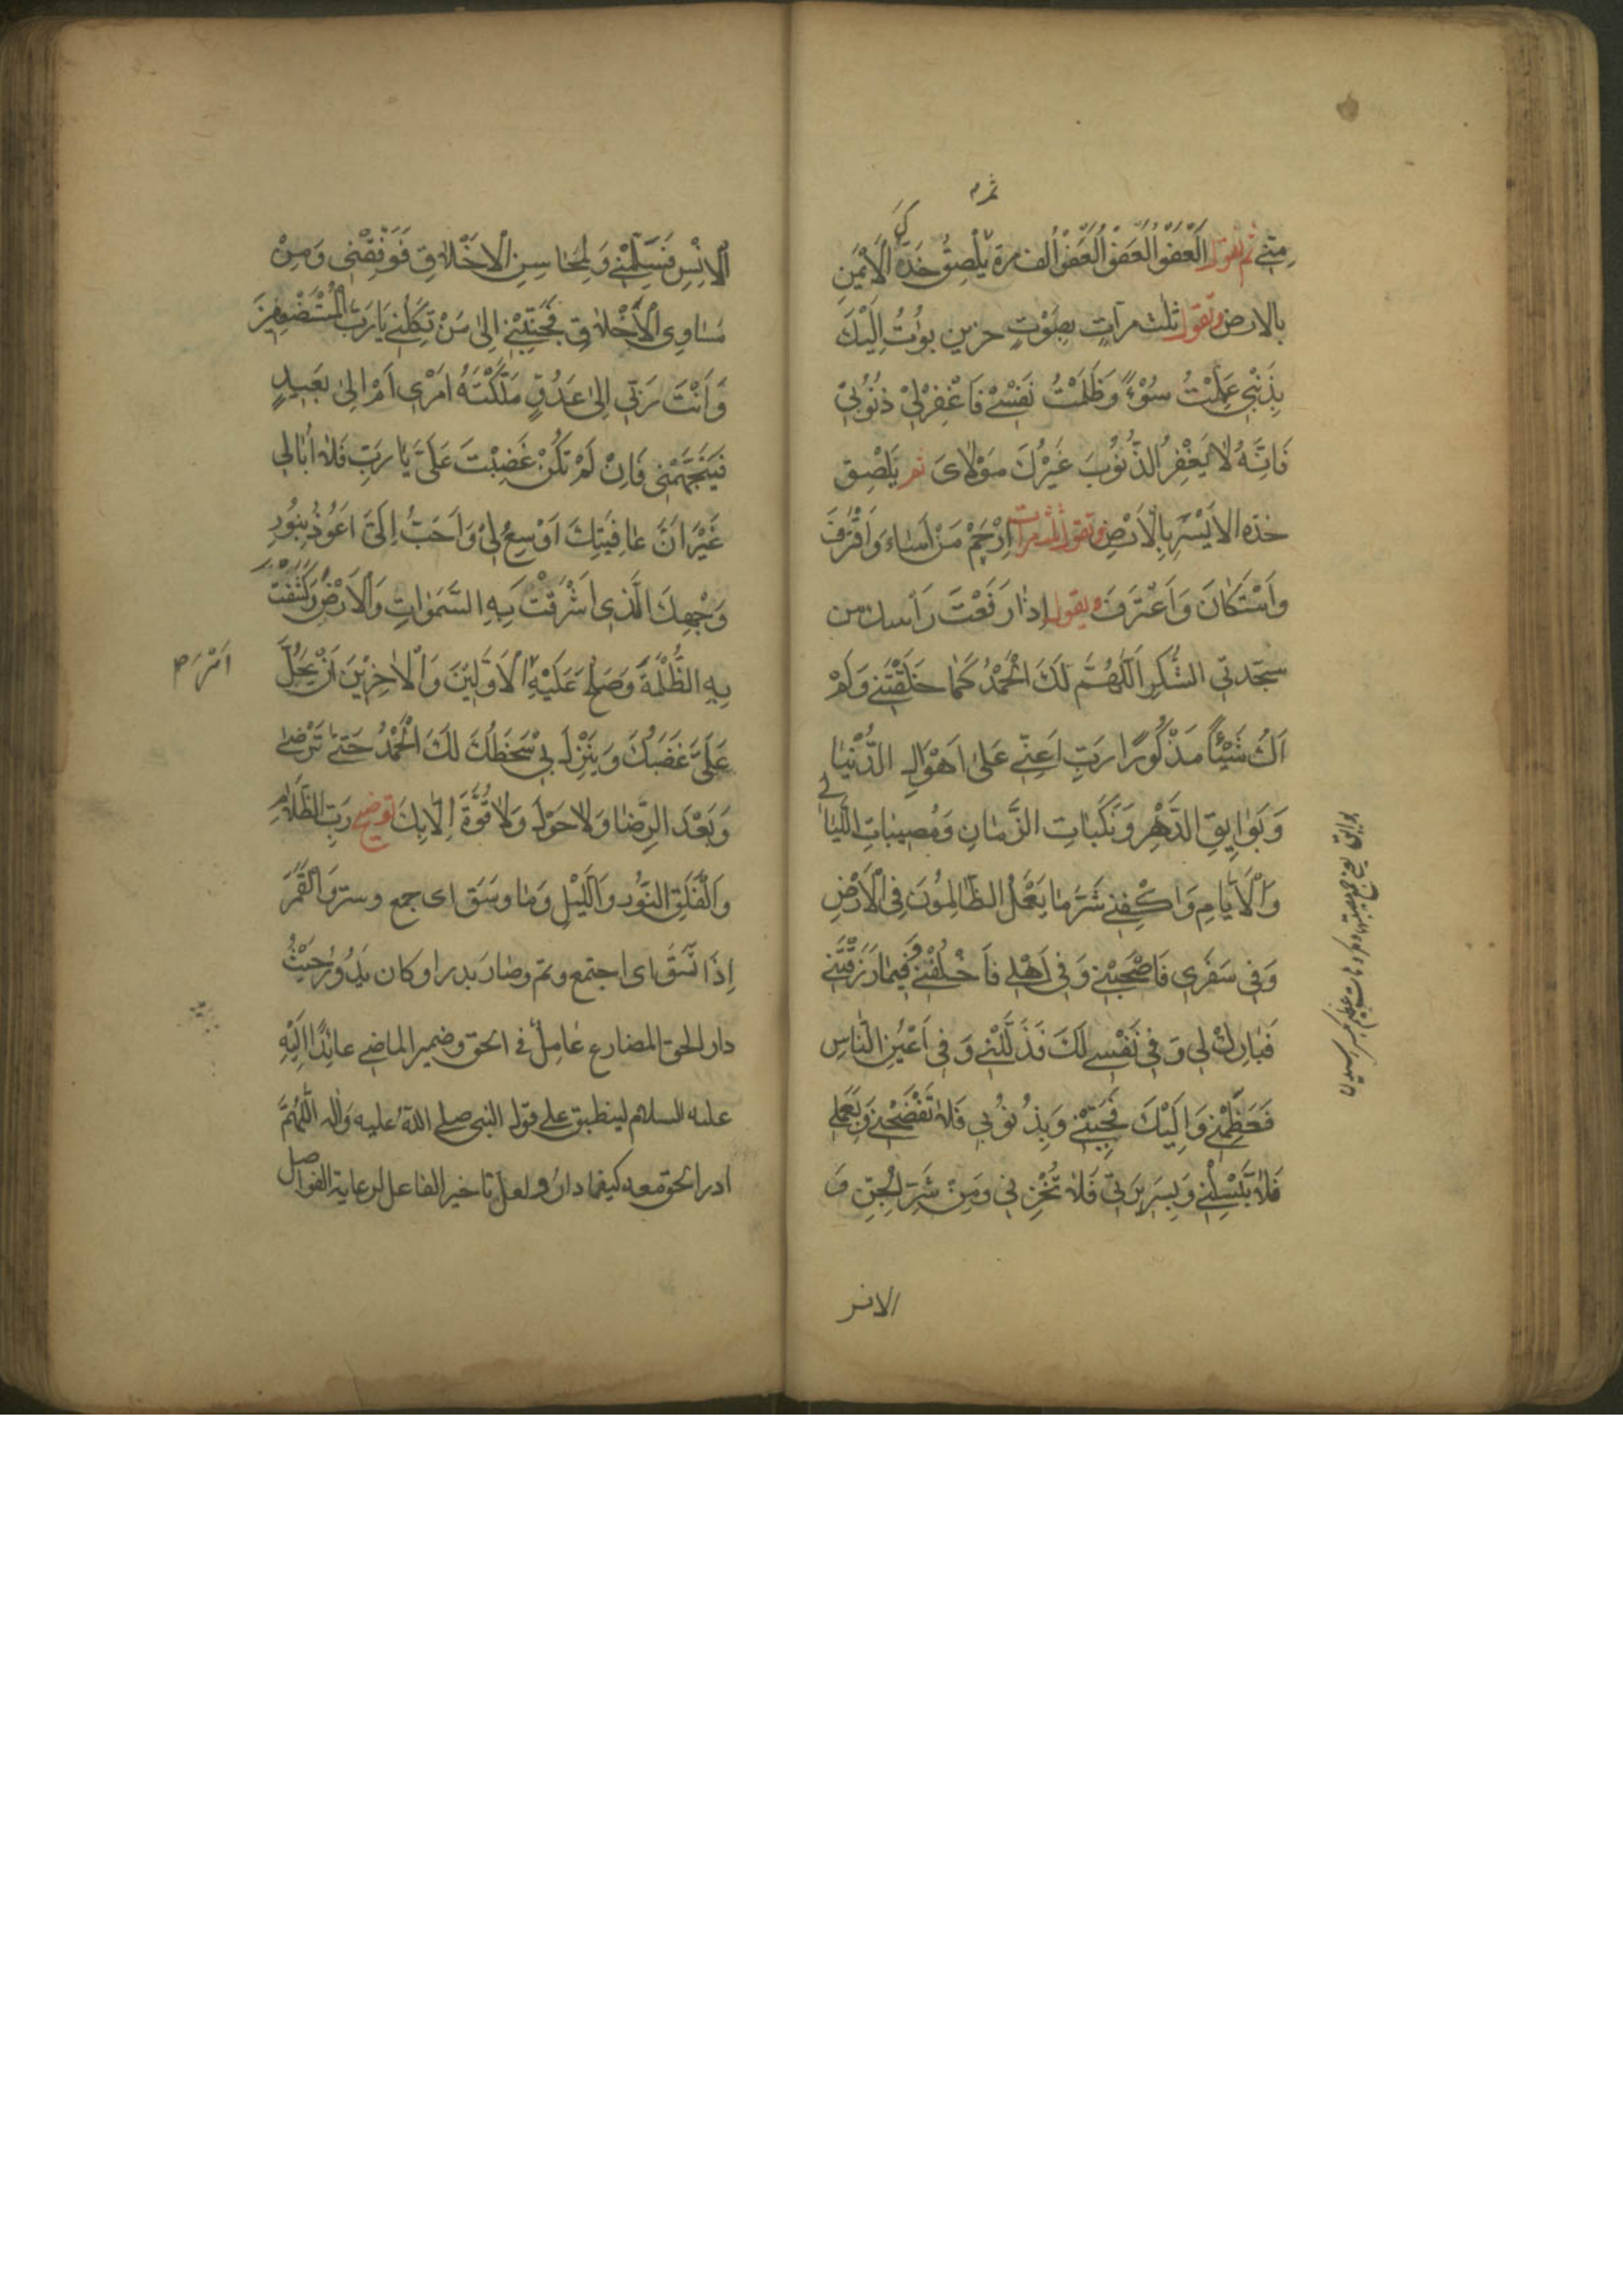 ثم
مِنِّي ثم تقول اَلْعَفْوَ الْعَفْوَ الْعَفْوَ الف مرة ثم يُلْصِقُ خَدَّهُ الْاَيْمَنِ
بالارض وتقول ثلث مرّاتٍ بِصَوْتٍ حزينٍ بُؤْتُ اِلَيْكَ
بِذَنْبِي عَمِلْتُ سُوْءً وَظَلَمْتُ نَفْسِي فَاغْفِرْلِي ذُنُوبِي
فَاِنَّهُ لَا يَغْفِرُ الذُّنُوبَ غَيْرُكَ مَوْلَايَ ثم يَلْصِق
خدّه الايْسَر بِالْاَرْضِ وتقول ثلث مرات اِرْحَمْ مَنْ اَسَاءَ وَاقْتَرَفَ
وَاسْتَكَانَ وَاعْتَرَفَ ويقول اِذَا رَفَعْتَ رَأسك من
سجدتي الشُّكر اَللّٰهُمَّ لَكَ الْحَمْدُ كَمَا خَلَقْتَنِي وَلَمْ
اَكُ شَيْئًا مَذْكُورًا رَبِّ اَعِنِّي عَلَى اَهْوَالِ الدُّنْيَا
وَبَوَايِقِ الدَّهْرِ وَنَكَبَاتِ الزَّمَانِ وَمُصِيبَاتِ اللَّيَالِي
وَالْاَيَّامِ وَاكْفِنِي شَرَّ مَا يَعْمَلُ الظَّالِمُونَ فِي الْاَرْضِ
وَفِي سَفَرِي فَاصْحَبْنِي وَفِي اَهْلِي فَاخْلُفْنِي وَفِيمَا رَزَقْتَنِي
فَبَارِكْ لِي وَفِي نَفْسِي لَكَ فَذَلِّلْنِي وَفِي اَعْيُنِ النَّاسِ
فَعَظِّمْنِي وَاِلَيْكَ فَحَبِّبْنِي وَبِذُنُوبِي فَلَا تَفْضَحْنِي وَبِعَمَلِي
فَلَا تَبْسِلْنِي وَبِسَرِيرَتِي فَلَا تُخْزِنِي وَمِنْ شَرِّ الْجِنِّ وَ
الانس
بوائق
الْاِنْسِ فَسَلِّمْنِي وَلِمَحَاسِنِ الْاَخْلَاقِ فَوَفِّقْنِي وَمِنْ
مَسَاوِي الْاَخْلَاقِ فَجَنِّبْنِي اِلٰى مَنْ تَكِلُنِي يَا رَبَّ الْمُسْتَضْعَفِينَ
وَاَنْتَ رَبِّي اِلٰى عَدُوٍّ مَلَّكْتَهُ اَمْرِي اَمْ اِلٰى بَعِيدٍ
فَيَتَجَهَّمُنِي فَاِنْ لَمْ تَكُنْ غَضِبْتَ عَلَيَّ يَا رَبِّ فَلَا اُبَالِي
غَيْرَ اَنَّ عَافِيَتَكَ اَوْسَعُ لِي وَاَحَبُّ اِلَيَّ اَعُوذُ بِنُورِ
وَجْهِكَ الَّذِي اَشْرَقَتْ بِهِ السَّمَوَاتِ وَالْاَرْضُ وَكُشِفَتْ
بِهِ الظُّلْمَةُ وَصَلُحَ عَلَيْهِ الْاَوَّلِينَ وَالْاٰخِرِينَ اَنْ يَحُلَّ
اَمْرُ
عَلَيَّ غَضَبُكَ وَيَنْزِلَ بِي سَخَطُكَ لَكَ الْحَمْدُ حَتّٰى تَرْضٰى
وَبَعْدَ الرِّضَا وَلَا حَوْلَ وَلَا قُوَّةَ اِلَّا بِكَ توضيح رَبِّ الظَّلَامِ
وَالْفَلَقِ النُّورِ وَاللَّيْلِ وَمَا وَسَقَ اى جمع وستر وَالْقَمَرَ
اِذَا اتَّسَقَ اى اجتمع وتمّ وصار بدرا وكان يَدُورُ حَيْثُ
دار الحق المضارع عَامِلٌ فى الحق وضمير الماضى عائِدًا اِلَيْهِ
عليه السلام لينطبق على قول النبى صلى الله عليه وآله اللّٰهُمَّ
ادر الحق معه كيفما دار ولعل تاخير الفاعل لرعاية الفواصل